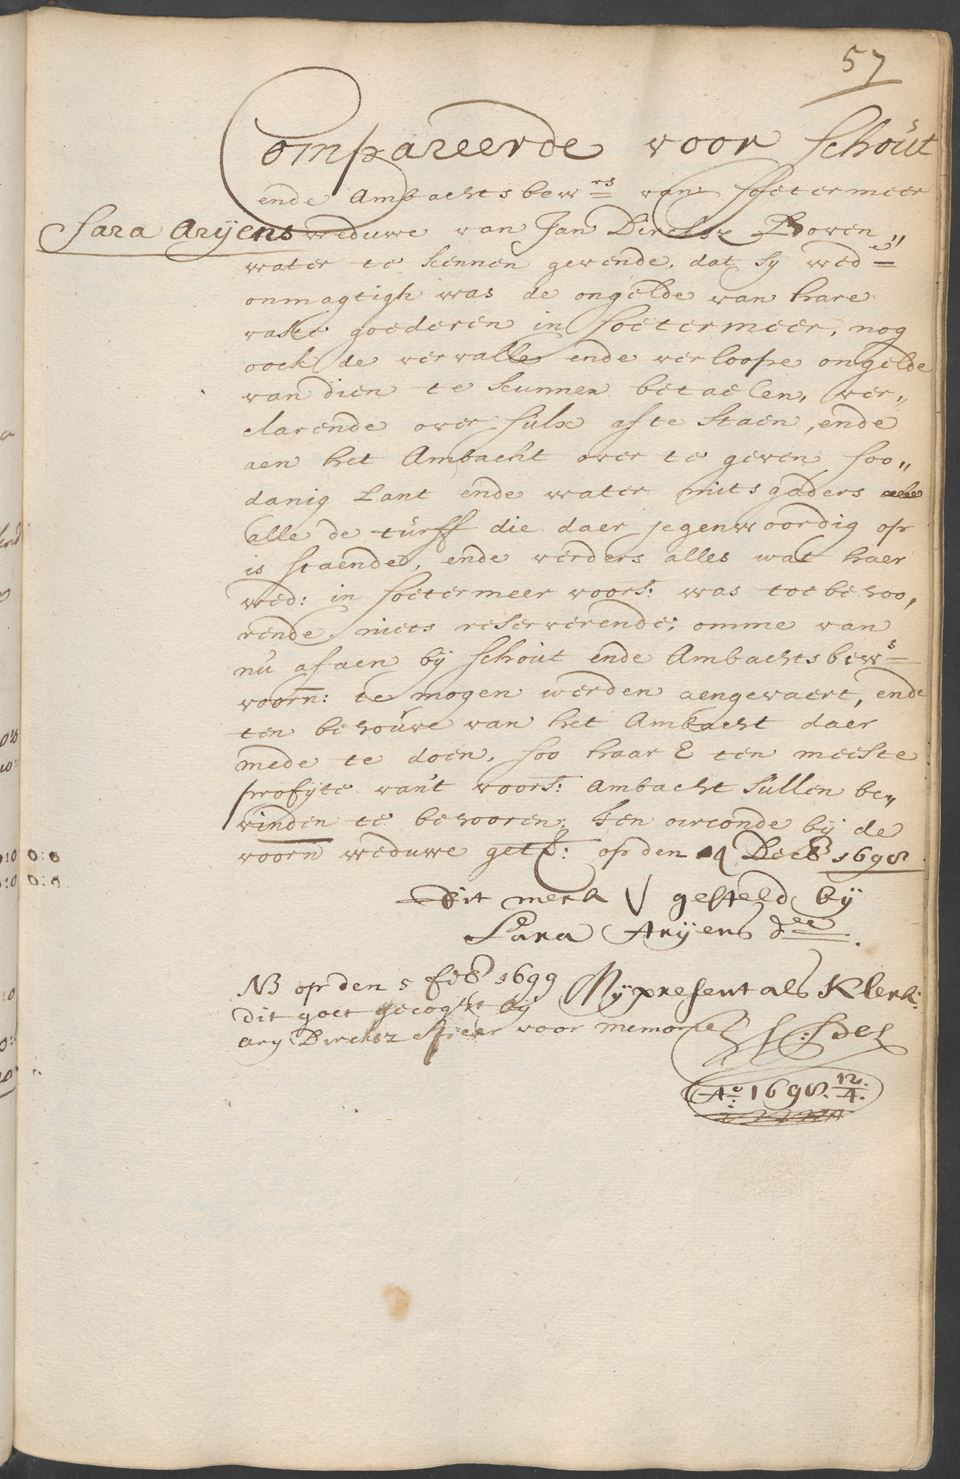 57
Compareerde voor Schout
ende Ambachtsbew:rs van Soetermeer
Sara Arijens weduwe van Jan Dircksz Boven„
water te kennen gevende, dat sy wed:e
onmagtigh was de ongelde van hare
vaste goederen in Soetermeer, nog
oock de vervalle ende verloope ongelde
van dien te kunnen betaelen, ver„
clarende over sulx af te staen, ende
aen het Ambacht over te geven soo„
danig Lant ende water mitsgaders
alle de turff die daer jegenwoordig op
is staende, ende verders alles wat haer
wed: in Soetermeer voors: was toebehoo„
rende niets reserverende; omme van
nu af aen bij Schout ende Ambachtsbew:s
voorn: te mogen werden aengevaert, ende
ten behouve van het Ambacht daer
mede te doen, soo haar E ten meeste
profijte van't voors: Ambacht sullen be„
vinden te behooren; ten oirconde bij de
voorn weduwe get: op den 4 Dec8 1698
Dit merk V gesteld by
Sara Arijens d:er
NB op den 5 feb8 1699
dit goet gecogt by
Ary Dircksz voor memorie
Mij present als Klerk:
Ao 1698. 12/4.
0:0
0:0